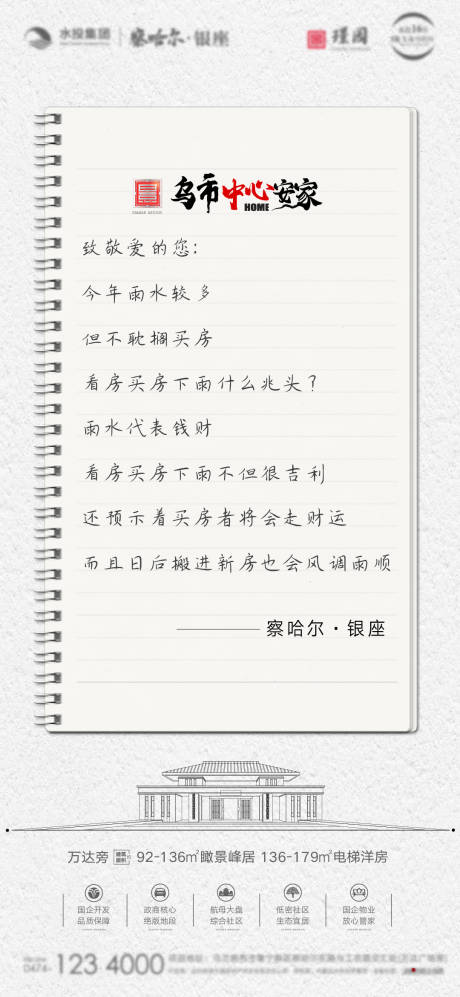 水投集团 察哈尔·银座
瑾园
乌市中心安家
HOME
致敬爱的您:
今年雨水较多
但不耽搁买房
看房买房下雨什么兆头?
雨水代表钱财
看房买房下雨不但很吉利
还预示着买房者将会走财运
而且日后搬进新房也会风调雨顺
察哈尔·银座
万达旁 建筑面积 92-136㎡瞰景峰居 136-179㎡电梯洋房
国企开发 政商核心 航母大盘 低密社区 国企物业
品质保障 绝版地段 综合社区 生态宜居 放心管家
0474- 123 4000